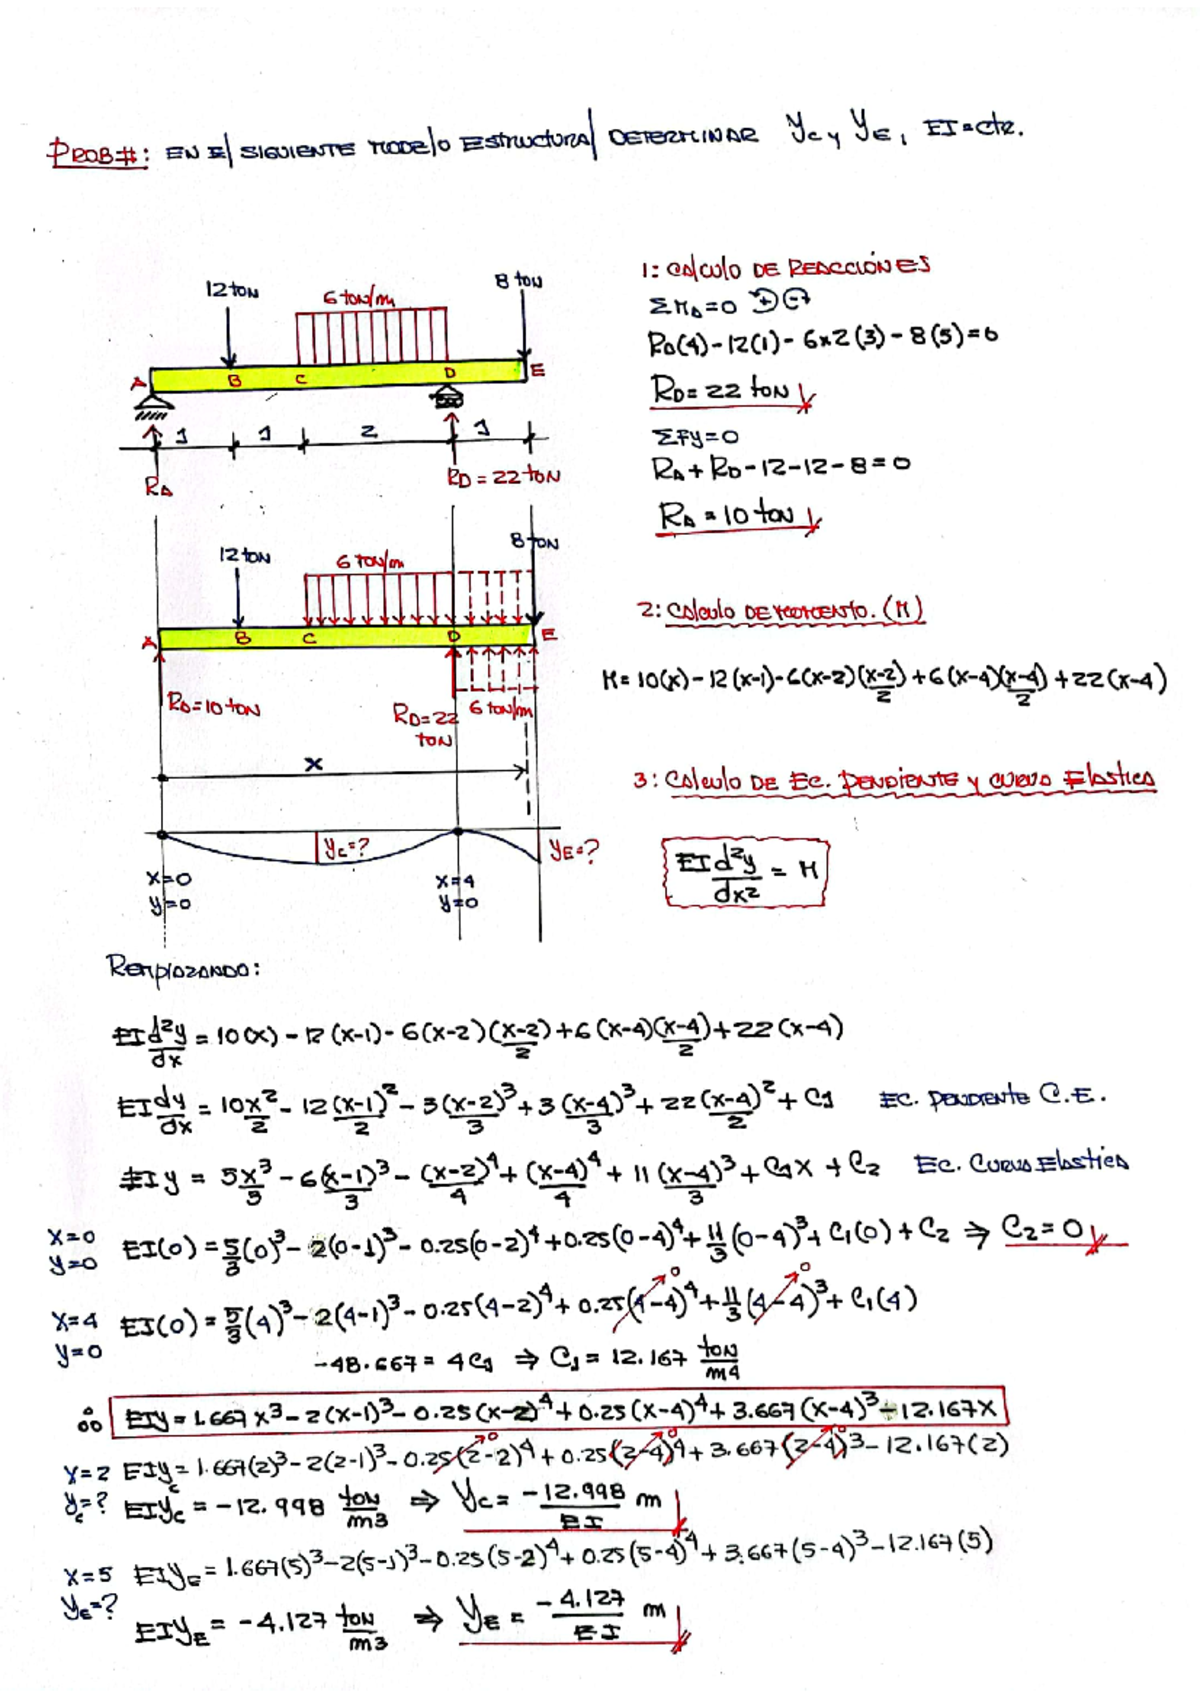 PROB#: EN El SIGUIENTE MODElO EstructuraL DETERMINAR Yc y YE, EI=cte.
12 ton
6 ton/m
8 ton
A
B
C
D
E
1
1
2
1
RA
RD = 22 ton
12 ton
6 ton/m
8 ton
A
B
C
D
E
RA=10 ton
RD=22 ton
6 ton/m
x
Yc=?
YE=?
x=0
y=0
x=4
y=0
1: Calculo DE REACCIÓNES
ΣMA=0
RD(4)-12(1)-6x2(3)-8(5)=0
RD=22 ton
ΣFy=0
RA+RD-12-12-8=0
RA=10 ton
2: Calculo DE MOMENto. (M)
M=10(x)-12(x-1)-6(x-2)(x-2)/2+6(x-4)(x-4)/2+22(x-4)
3: Calculo DE Ec. PENDIENTE y CURVA Elastica
EI d²y/dx² = M
Remplazando:
EI d²y/dx = 10(x)-12(x-1)-6(x-2)(x-2)/2+6(x-4)(x-4)/2+22(x-4)
EI dy/dx = 10x²/2-12(x-1)²/2-3(x-2)³/3+3(x-4)³/3+22(x-4)²/2+C1 EC. PENDIENTE C.E.
EIy = 5x³/3-6(x-1)³/3-(x-2)⁴/4+(x-4)⁴/4+11(x-4)³/3+C1x+C2 Ec. Curva Elastica
x=0
y=0
EI(0)=5/3(0)³-2(0-1)³-0.25(0-2)⁴+0.25(0-4)⁴+11/3(0-4)³+C1(0)+C2 ⇒ C2=0
x=4
y=0
EI(0)=5/3(4)³-2(4-1)³-0.25(4-2)⁴+0.25(4-4)⁴ 0+11/3(4-4)³ 0+C1(4)
-48.667=4C1 ⇒ C1=12.167 ton/m4
∴ EIy=1.667x³-2(x-1)³-0.25(x-2)⁴+0.25(x-4)⁴+3.667(x-4)³-12.167x
x=2 EIyc=1.667(2)³-2(2-1)³-0.25(2-2)⁴ 0+0.25(2-4)⁴ 0+3.667(2-4)³ 0-12.167(2)
yc=? EIYc=-12.998 ton/m3 ⇒ Yc=-12.998/EI m
x=5 EIyE=1.667(5)³-2(5-1)³-0.25(5-2)⁴+0.25(5-4)⁴+3.667(5-4)³-12.167(5)
YE=? EIYE=-4.127 ton/m3 ⇒ YE=-4.127/EI m